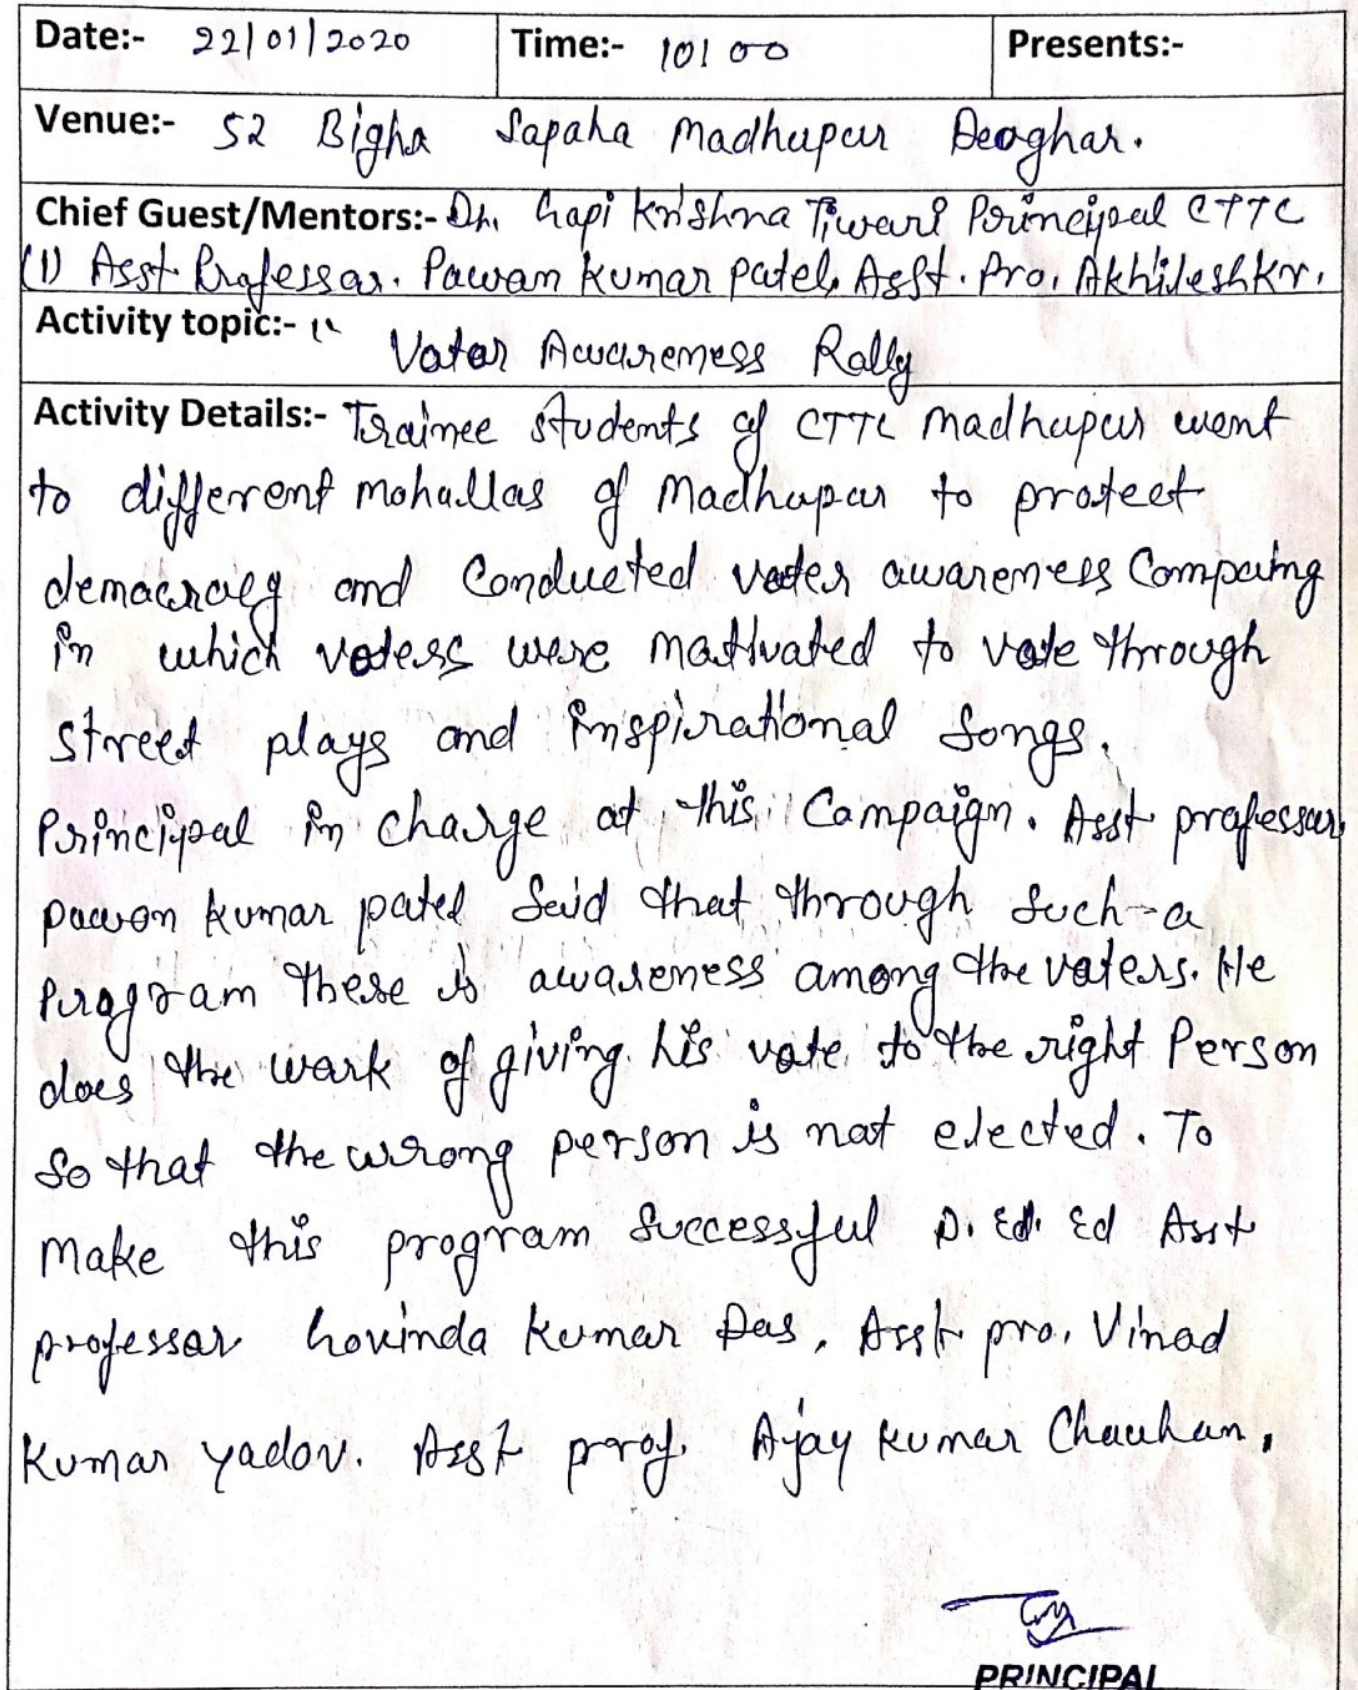 Date:- 22/01/2020 Time:- 10:00 Presents:-
Venue:- 52 Bigha Sapaha Madhupur Deoghar.
Chief Guest/Mentors:- Dr. Gopi Krishna Tiwari Principal CTTC
(1) Asst Professor. Pawan Kumar Patel, Asst. Pro. Akhilesh Kr.
Activity topic:- "
Voter Awareness Rally
Activity Details:- Trainee students of CTTC Madhupur went
to different mohallas of Madhupur to protect
democracy and Conducted voter awareness Compaing
in which voters were motivated to vote through
street plays and inspirational songs.
Principal in charge at this Campaign. Asst professor
pawan kumar patel said that through such-a
program these is awareness among the voters. He
does the work of giving his vote to the right Person
so that the wrong person is not elected. To
make this program successful D. Ed. Ed Asst
professor Govinda Kumar Das, Asst pro. Vinod
Kumar yadav. Asst prof. Ajay Kumar Chauhan,
PRINCIPAL